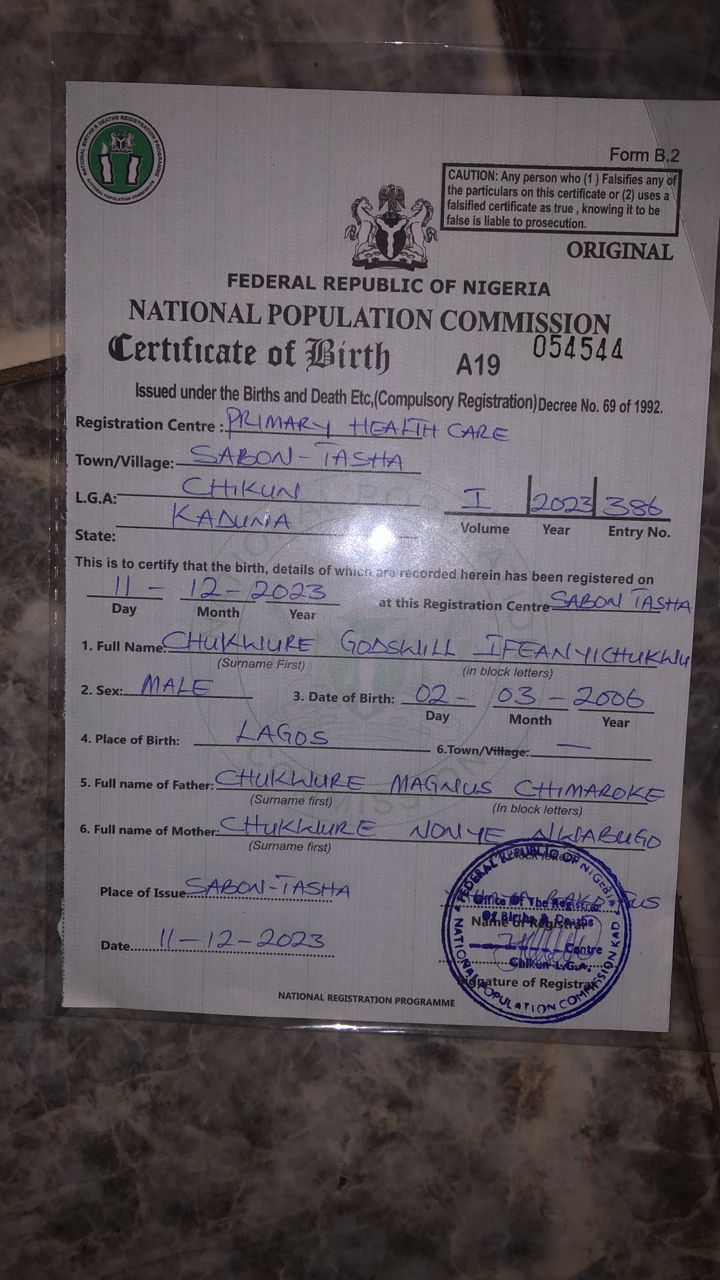 NATIONAL BIRTHS & DEATHS REGISTRATION PROGRAMME
NATIONAL POPULATION COMMISSION
Form B.2
CAUTION: Any person who (1) Falsifies any of
the particulars on this certificate or (2) uses a
falsified certificate as true, knowing it to be
false is liable to prosecution.
ORIGINAL
FEDERAL REPUBLIC OF NIGERIA
NATIONAL POPULATION COMMISSION
Certificate of Birth A19 054544
Issued under the Births and Death Etc,(Compulsory Registration) Decree No. 69 of 1992.
Registration Centre : PRIMARY HEALTH CARE
Town/Village: SABON-TASHA
L.G.A: CHIKUN I 2023 386
Volume Year Entry No.
State: KADUNA
This is to certify that the birth, details of which are recorded herein has been registered on
11 - 12 - 2023 at this Registration Centre SABON TASHA
Day Month Year
1. Full Name: CHUKWURE GODSWILL IFEANYICHUKWU
(Surname First) (in block letters)
2. Sex: MALE 3. Date of Birth: 02 - 03 - 2006
Day Month Year
4. Place of Birth: LAGOS 6.Town/Village: —
5. Full name of Father: CHUKWURE MAGNUS CHIMAROKE
(Surname first) (In block letters)
6. Full name of Mother: CHUKWURE NONYE NWABUGO
(Surname first)
Place of Issue SABON-TASHA
Name of Registrar
Date 11-12-2023
Signature of Registrar
FEDERAL REPUBLIC OF NIGERIA
Office Of The Registrar
Of Births & Deaths
Centre
Chikun L.G.A.
NATIONAL POPULATION COMMISSION KAD
NATIONAL REGISTRATION PROGRAMME